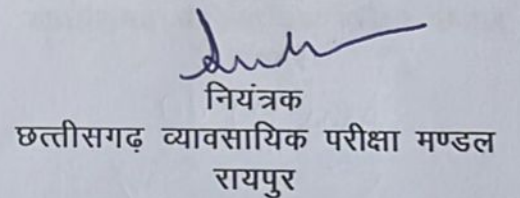 नियंत्रक
छत्तीसगढ़ व्यावसायिक परीक्षा मण्डल
रायपुर